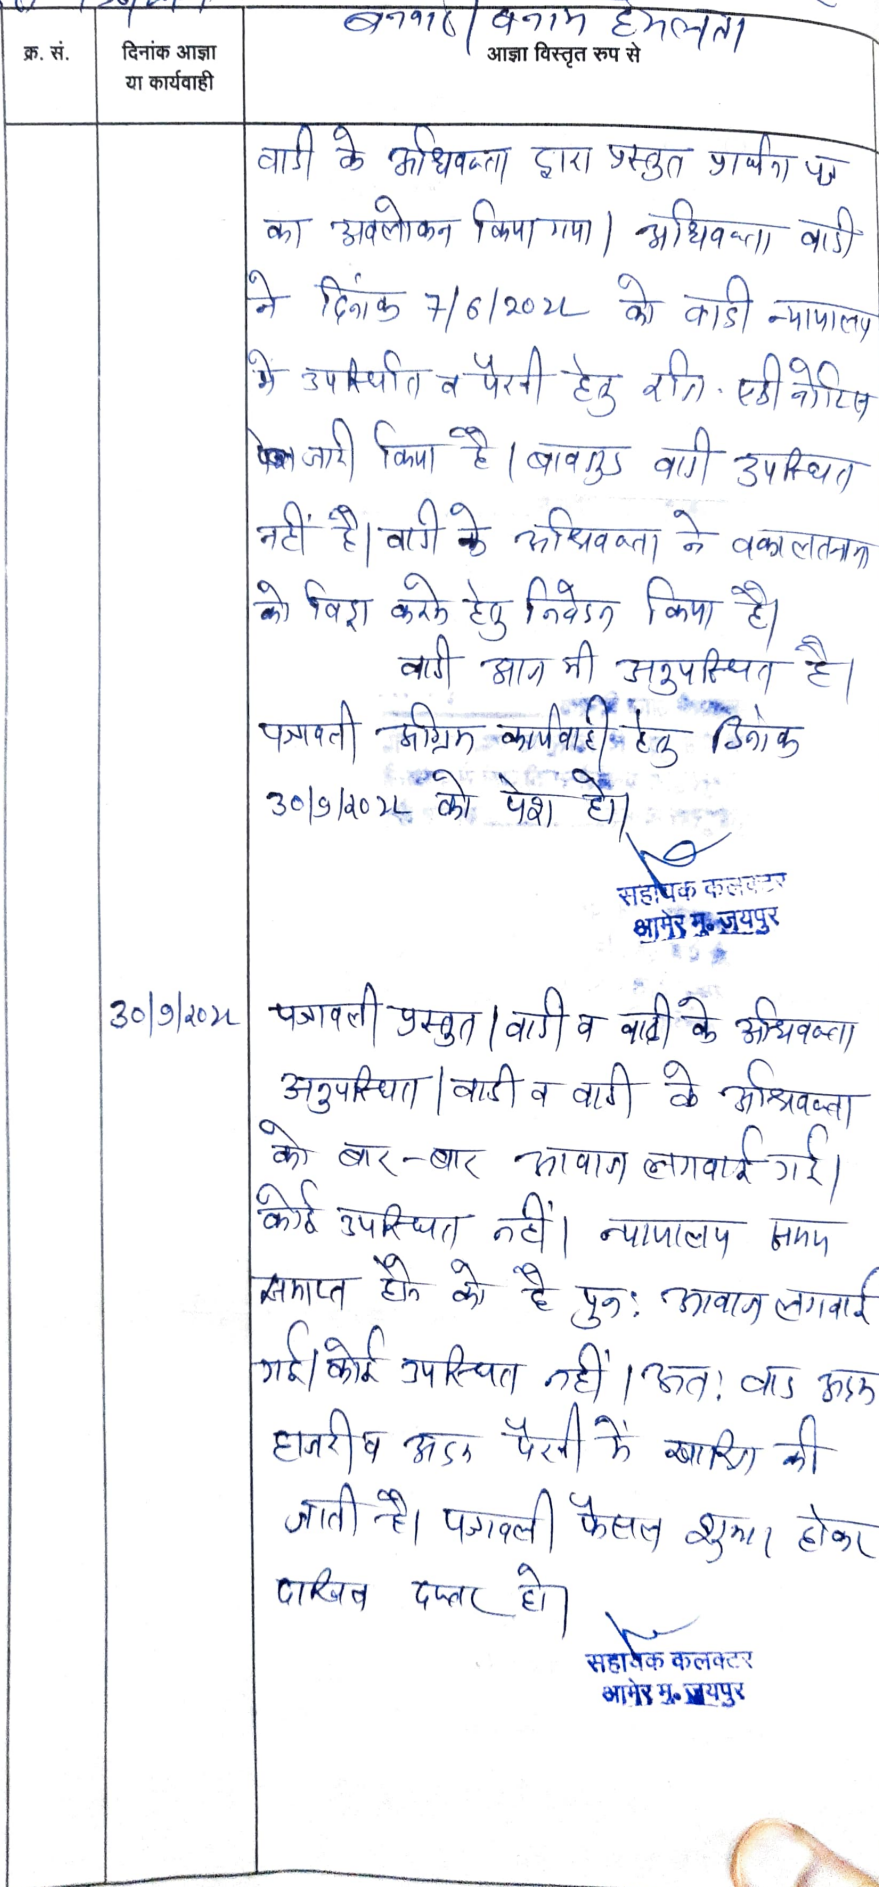 बनाम हेमलता
क्र. सं.
दिनांक आज्ञा
या कार्यवाही
आज्ञा विस्तृत रुप से
वादी के अधिवक्ता द्वारा प्रस्तुत प्रार्थना पत्र
का अवलोकन किया गया। अधिवक्ता वादी
ने दिनांक 7/6/2022 को वादी न्यायालय
में उपस्थिति व पैरवी हेतु रजि. एडी नोटिस
जारी किया है। बावजूद वादी उपस्थित
नहीं है। वादी के अधिवक्ता ने वकालतनामा
को विड्रा करने हेतु निवेदन किया है।
वादी आज भी अनुपस्थित है।
पत्रावली अग्रिम कार्यवाही हेतु दिनांक
30/9/2022 को पेश हो।
सहायक कलक्टर
आमेर मु. जयपुर
30/9/2022 पत्रावली प्रस्तुत। वादी व वादी के अधिवक्ता
अनुपस्थित। वादी व वादी के अधिवक्ता
को बार-बार आवाज लगवाई गई।
कोई उपस्थित नहीं। न्यायालय समय
समाप्त होने को है पुन: आवाज लगवाई
गई। कोई उपस्थित नहीं। अत: वाद अदम
हाजरी व अदम पैरवी में खारिज की
जाती है। पत्रावली फैसल शुमार होकर
दाखिल दफ्तर हो।
सहायक कलक्टर
आमेर मु. जयपुर